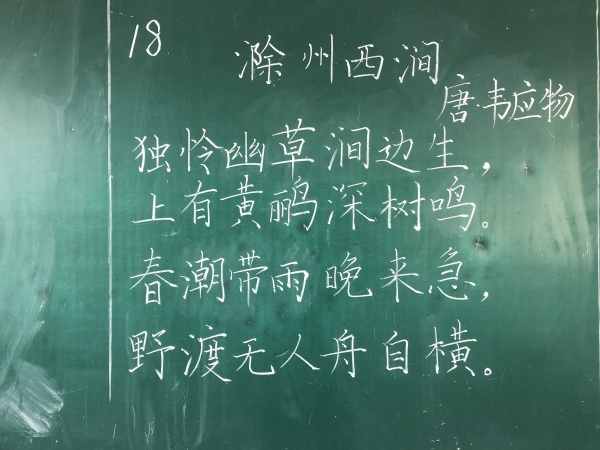 18
滁州西涧
唐·韦应物
独怜幽草涧边生，
上有黄鹂深树鸣。
春潮带雨晚来急，
野渡无人舟自横。